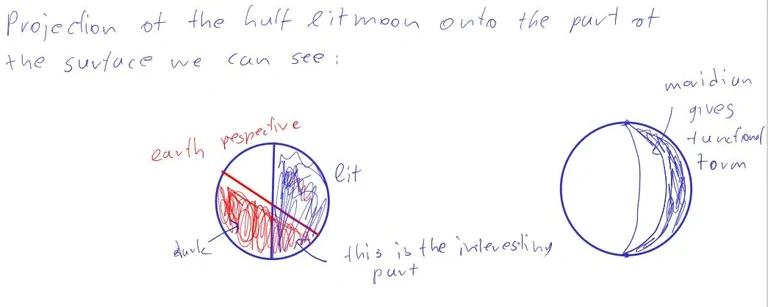 Projection of the half lit moon onto the part of
the surface we can see:
earth pespective
lit
dark
this is the interesting
part
meridian
gives
functional
form